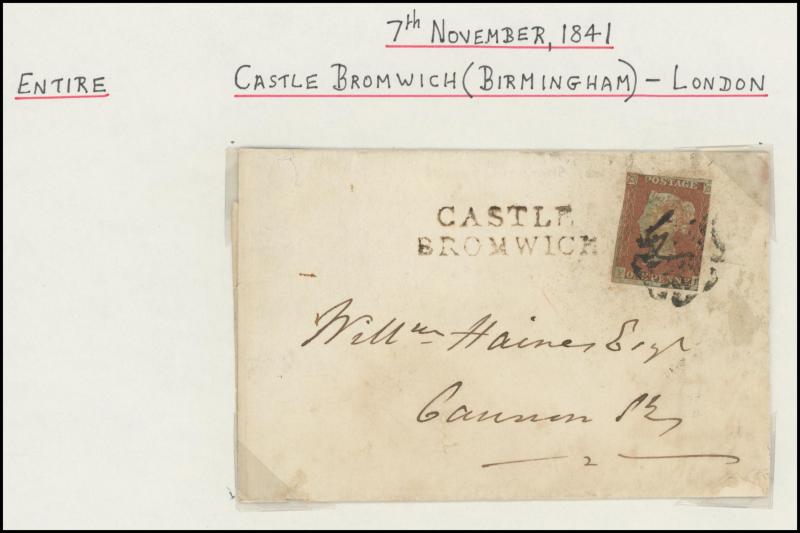 7th NOVEMBER, 1841
ENTIRE
CASTLE BROMWICH (BIRMINGHAM) – LONDON
POSTAGE
CASTLE
BROMWICH
ONE PENNY
Willm Haines Esqr
Cannon St